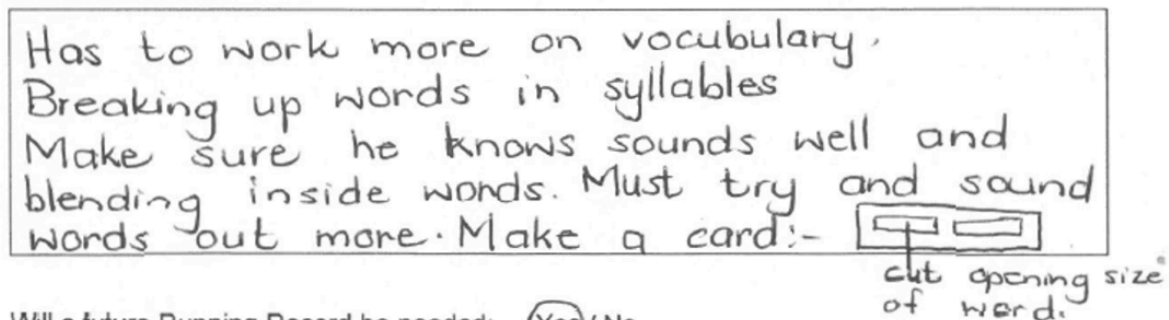 Has to work more on vocubulary.
Breaking up words in syllables
Make sure he knows sounds well and
blending inside words. Must try and sound
words out more. Make a card:-
cut opening size
of word.
Will a future Running Record be needed: Yes / No